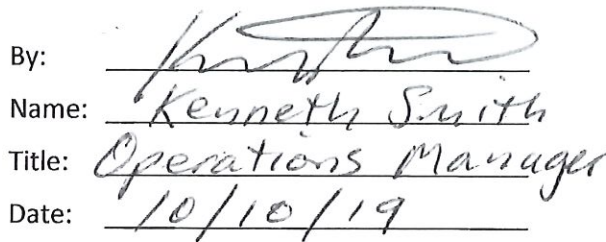 By:
Name: Kenneth Smith
Title: Operations Manager
Date: 10/10/19